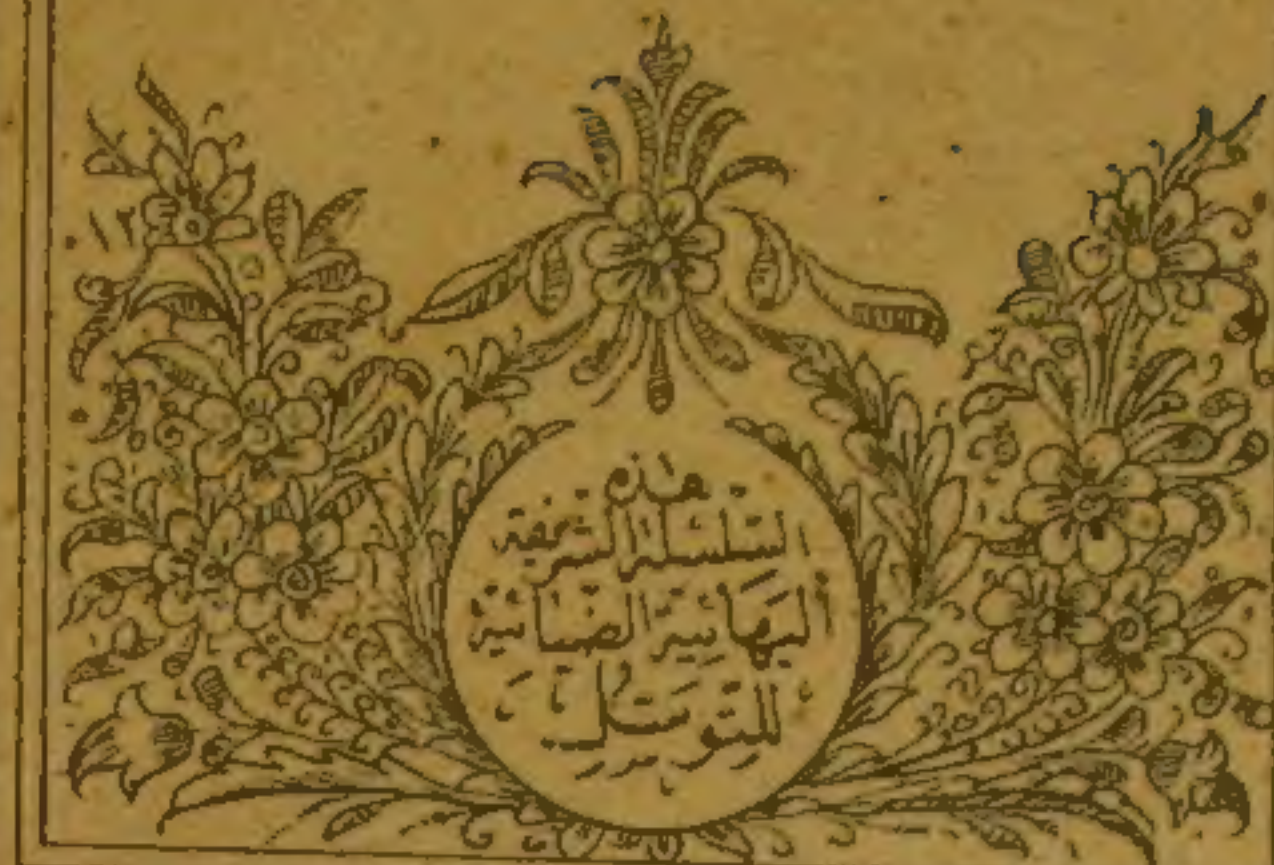 هذه
السلسلة الشريفة
البهائية الضيائية
للتوسل